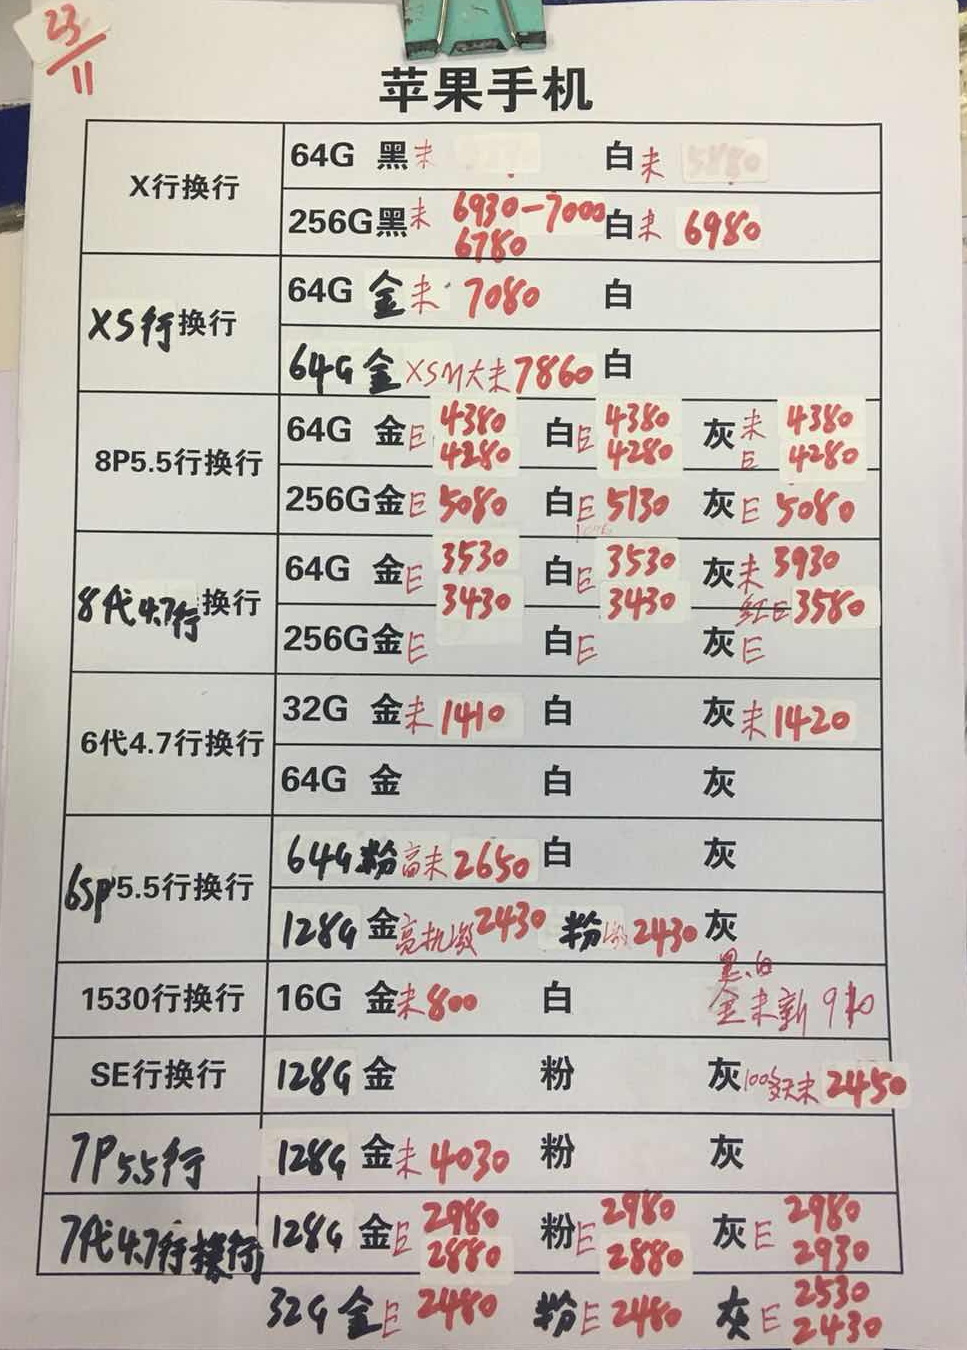 23/11
苹果手机
X行换行 64G 黑未 白未
256G黑未 6930-7000 6780 白未 6980
XS行换行 64G 金未 7080 白
64G 金 XSM大未 7860 白
8P5.5行换行 64G 金E 4380 4280 白E 4380 4280 灰 未 4380 E 4280
256G金E 5080 白E 5130 灰E 5080
8代4.7行换行 64G 金E 3530 3430 白E 3530 3430 灰未 3930 红E 3580
256G金E 白E 灰E
6代4.7行换行 32G 金未 1410 白 灰未 1420
64G 金 白 灰
6SP5.5行换行 64G 粉 高未 2650 白 灰
128G 金 高机激 2430 粉 激 2430 灰
1530行换行 16G 金未 800 白 黑、白 金未新
SE行换行 128G 金 粉 灰 100多天未 2450
7P5.5行 128G 金未 4030 粉 灰
7代4.7行换行 128G 金E 2980 2880 粉E 2980 2880 灰E 2980 2930
32G 金E 2480 粉E 2480 灰E 2530 2430